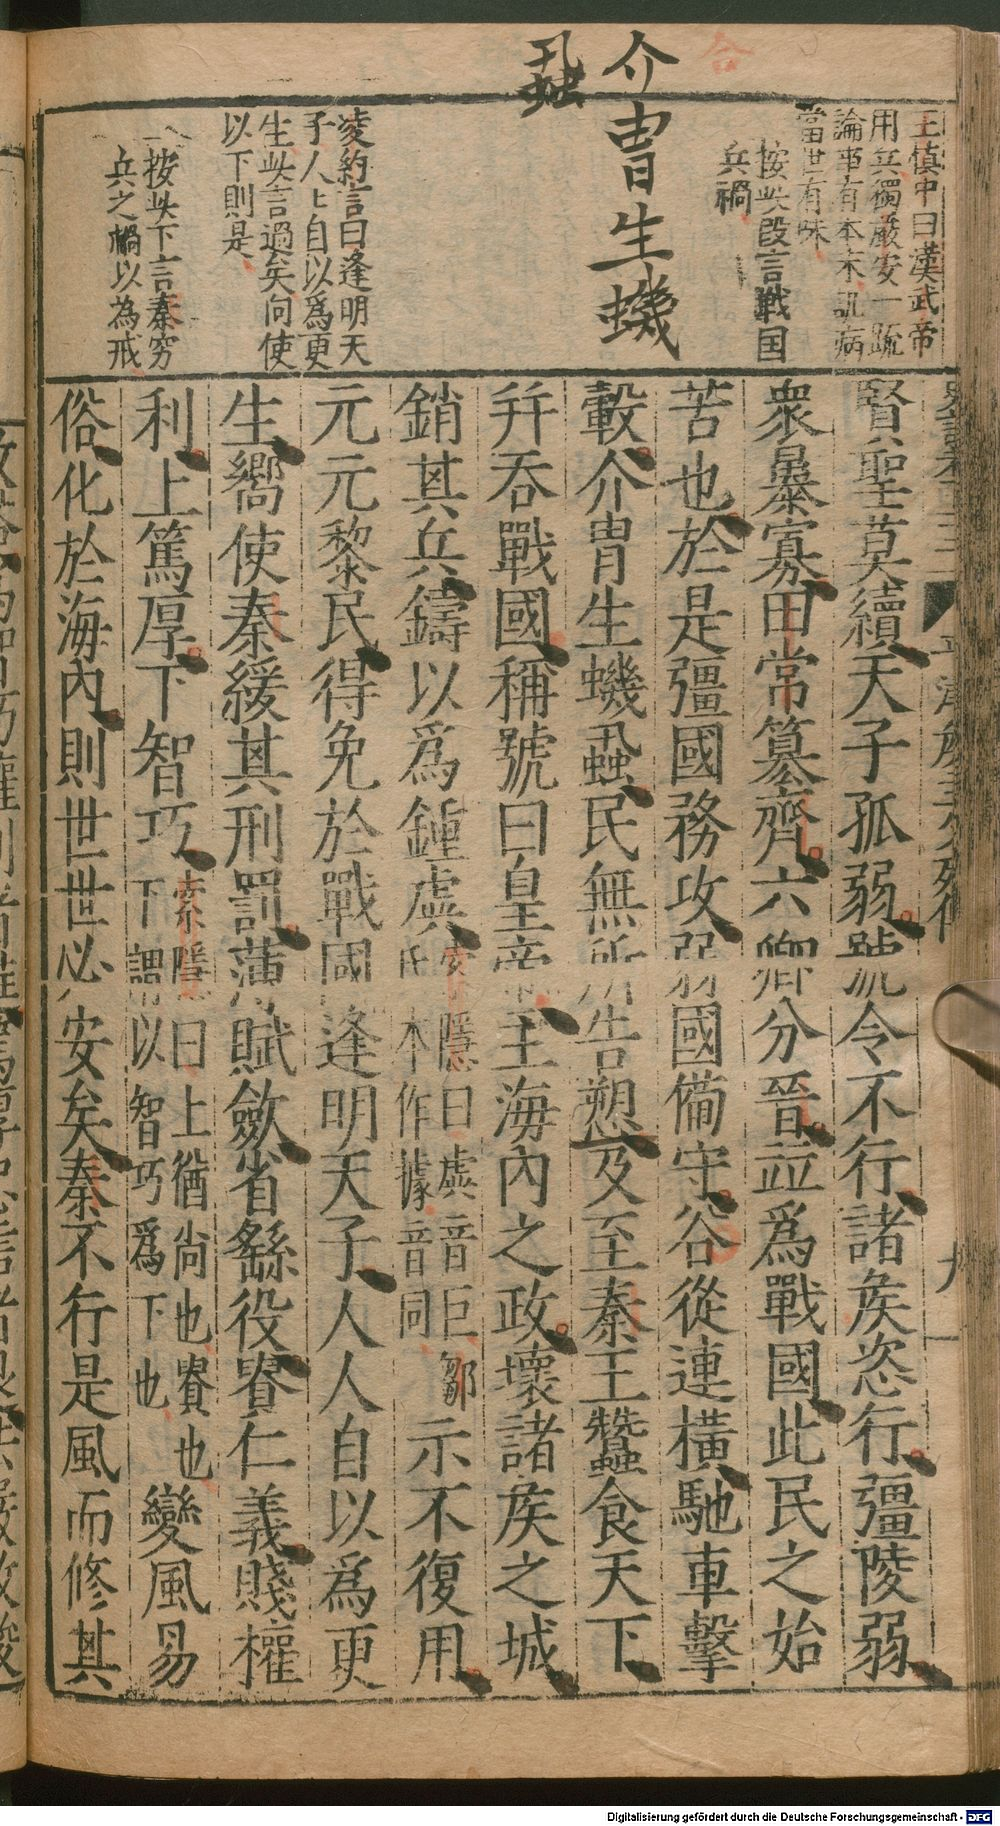 合
介冑生蟣
蝨
王慎中曰漢武帝
用兵獨嚴安一疏
論事有本末訊病
當世有味
按此段言戰国
兵禍
凌約言曰逢明天
子人人自以爲更
生此言過矣向使
以下則是
按此下言秦穷
兵之禍以為戒
賢聖莫續天子孤弱號令不行諸矦恣行彊陵弱
衆暴寡田常篡齊六卿分晉竝爲戰國此民之始
苦也於是彊國務攻弱國備守合從連橫馳車擊
轂介冑生蟣蝨民無所告愬及至秦王蠶食天下
幷吞戰國稱號曰皇帝主海內之政壞諸矦之城
銷其兵鑄以爲鍾虡索隱曰虡音巨鄒氏本作據音同示不復用
元元黎民得免於戰國逢明天子人人自以爲更
生嚮使秦緩其刑罰薄賦斂省繇役貴仁義賤權
利上篤厚下智巧索隱曰上猶尚也貴也下謂以智巧爲下也變風易
俗化於海內則世世必安矣秦不行是風而修其
Digitalisierung gefördert durch die Deutsche Forschungsgemeinschaft - DFG